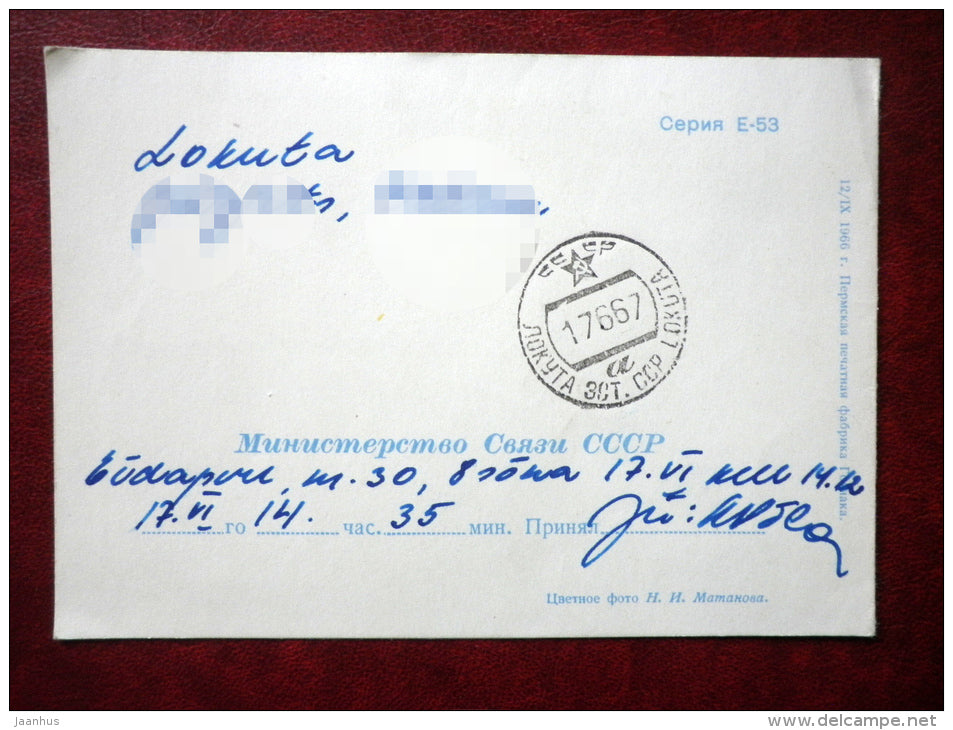 Серия Е-53
Lokuta
СССР
17667
а
ЛОКУТА ЭСТ. ССР LOKUTA
12/IX 1966 г. Пермская печатная фабрика Гознака.
Министерство Связи СССР
т. 30, 8 sõna 17. VI kell 14.12
17. VI го 14. час. 35 мин. Принял
Цветное фото Н. И. Матанова.
jaanhus
www.delcampe.net